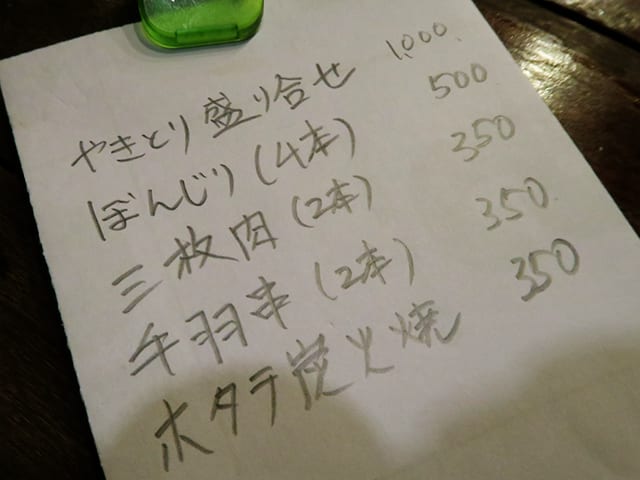 やきとり盛り合せ 1,000.
ぼんじり(4本) 500
三枚肉(2本) 350
手羽串(2本) 350.
ホタテ炭火焼 350